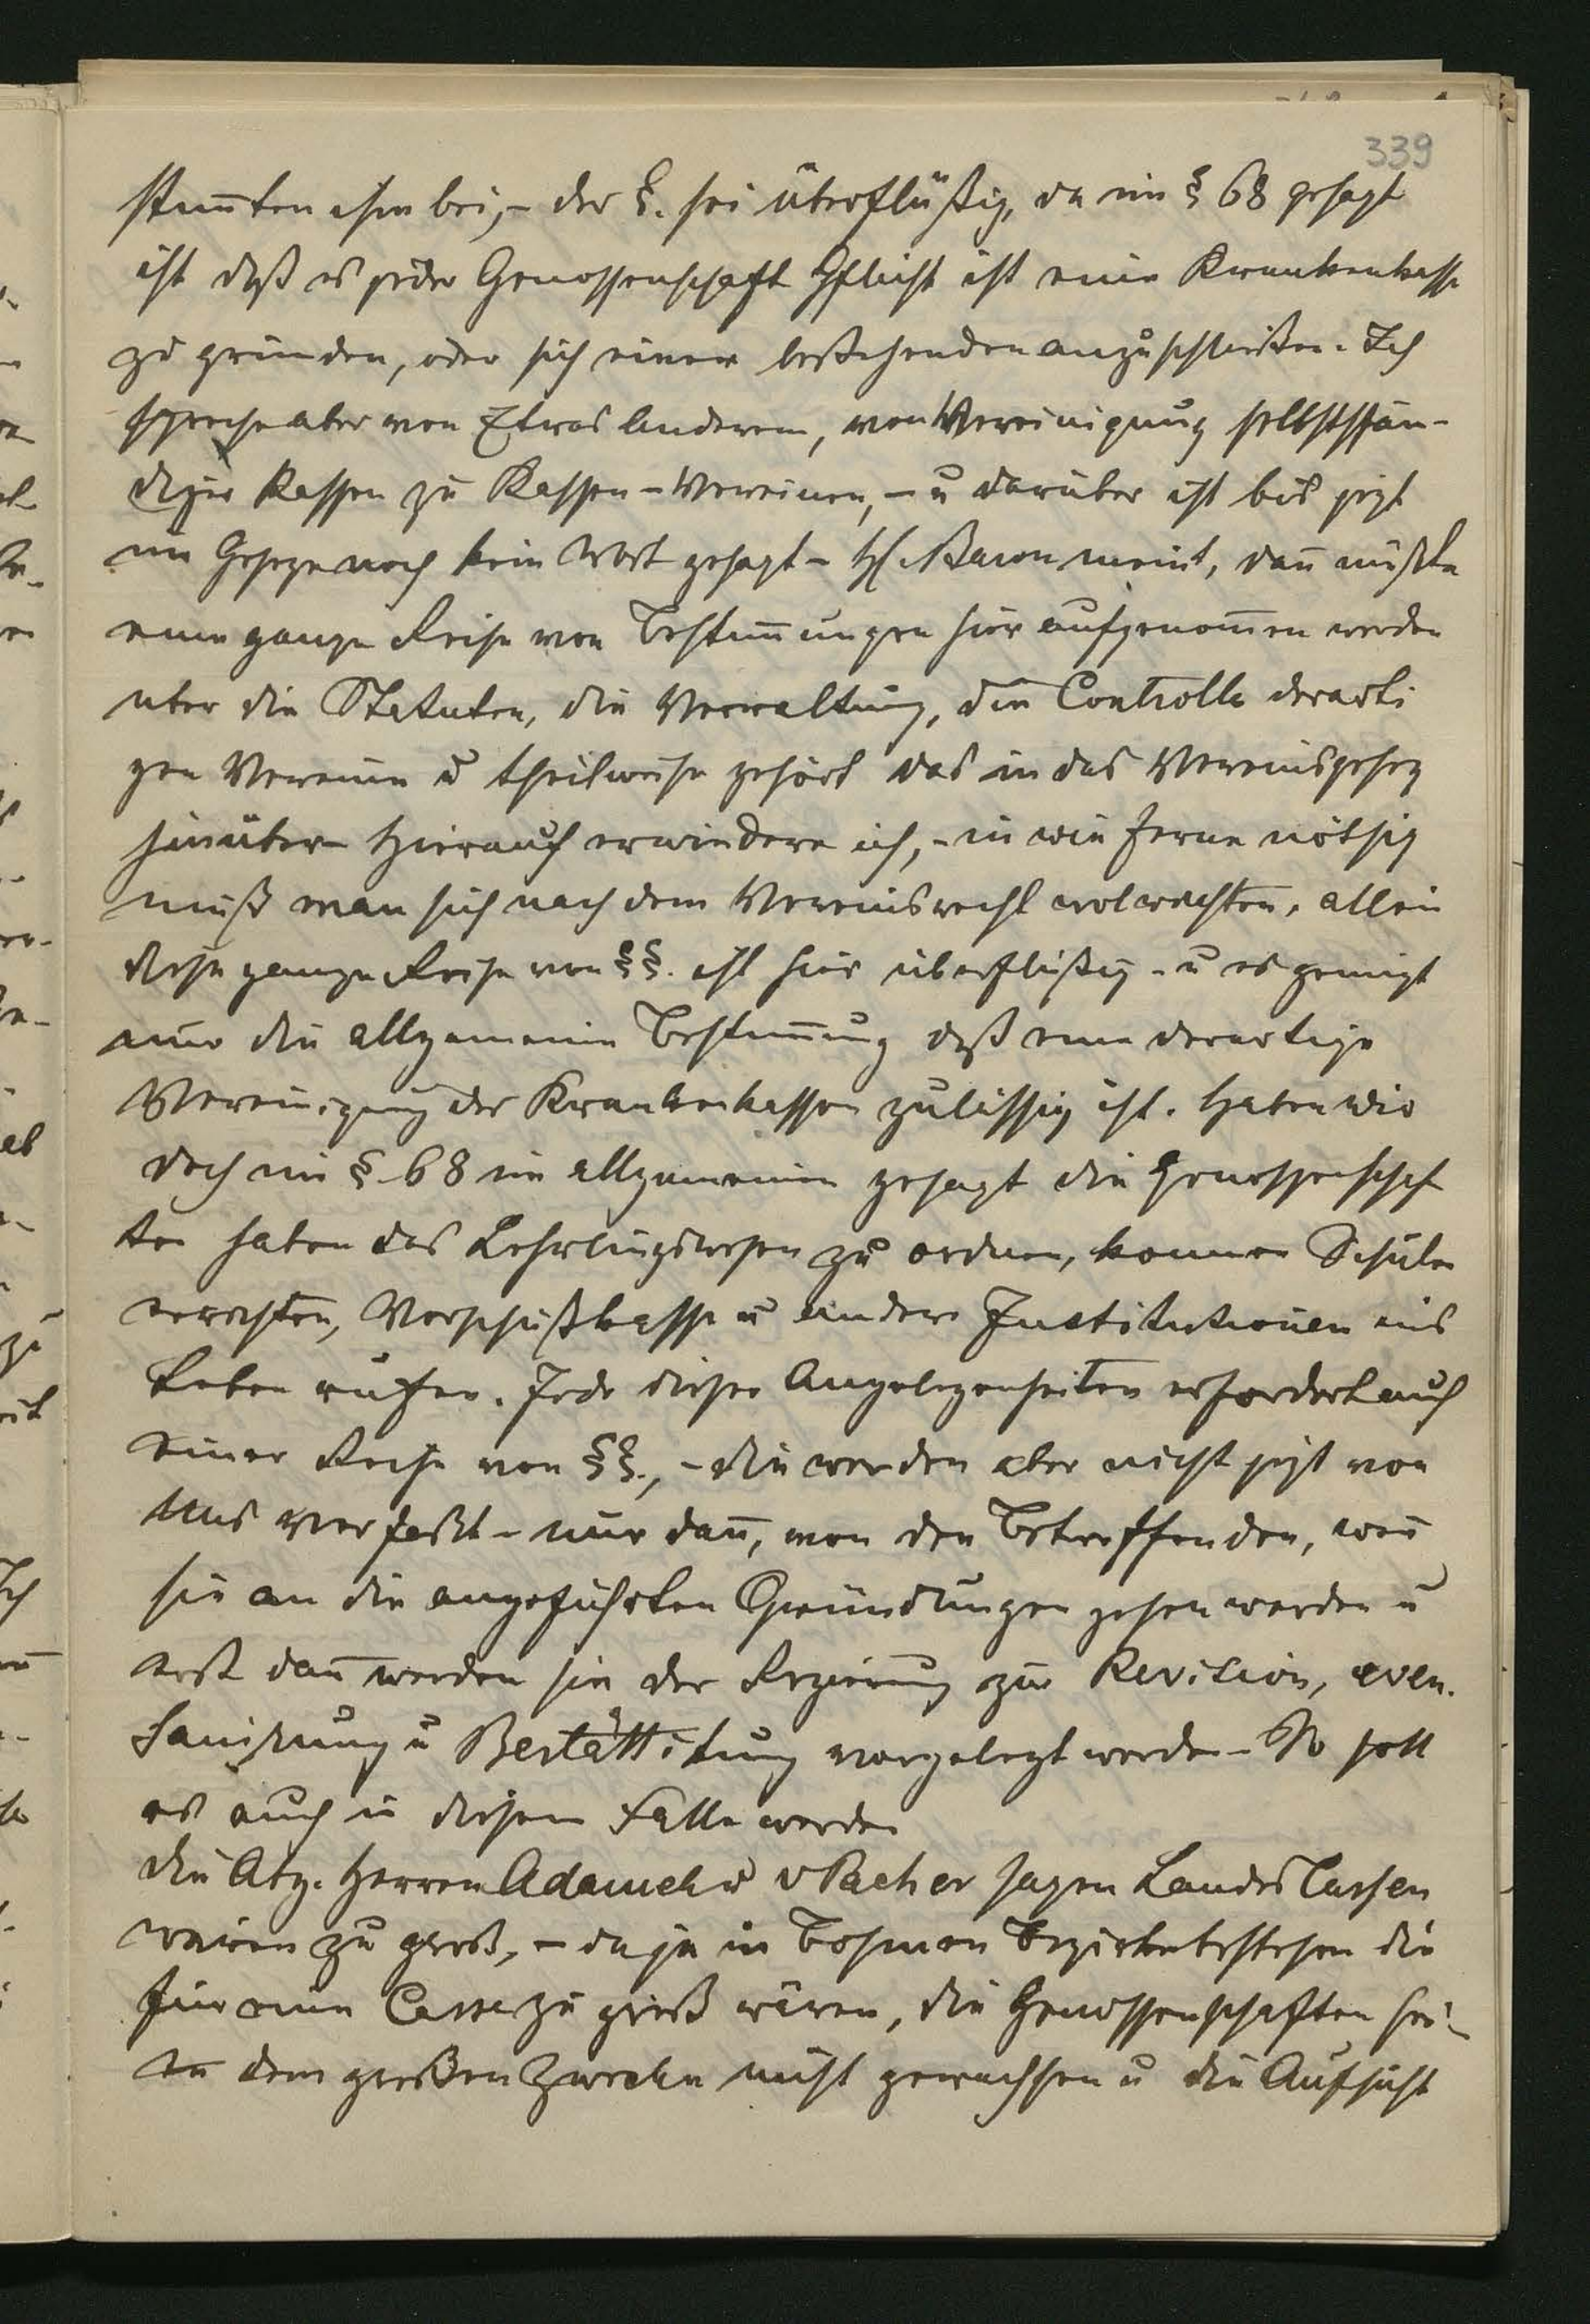 339
stim̄ten ihm bei, – der §. sei überflüßig, da im § 68 gesagt
ist daß es jeder Genossenschaft Pflicht ist eine Krankenkasse
zu gründen, oder sich einer bestehenden anzuschließen. Ich
spreche aber von Etwas Anderem, von Vereinigung selbststän-
diger Kassen zu Kassen-Vereinen, – u darüber ist bis jezt
im Geseze noch kein Wort gesagt – H. Baron meint, dan̄ müßte
eine ganze Reihe von Bestim̄ungen hier aufgenom̄en werden
über die Statuten, die Verwaltung, die Controlle derarti
gen Vereine u theilweise gehört das in das Vereinsgesez
hinüber – Hierauf erwiedere ich, – in wie ferne nöthig
muß man sich nach dem Vereinsrecht wol richten, allein
diese ganze Reihe von §§. ist hier überflüßig – u es genügt
nur die allgemeine Bestim̄ung daß eine derartige
Vereinigung der Krankenkassen zulässig ist. Haben wir
doch im § 68 im allgemeinen gesagt die Genossenschaf
ten haben das Lehrlingswesen zu ordnen, können Schulen
errichten, Vorschußkasse u andere Institutionen ins
Leben rufen. Jede dieser Angelegenheiten erfordert auch
einer Reihe von §§., – die werden aber nicht jezt von
Uns verfaßt – nur dan̄, von den Betreffenden, wen̄
sie an die angeführten Gründungen gehen werden u
erst dan̄ werden sie der Regierung zur Revision, even.
Sanirung u Bestättigung vorgelegt werden – So soll
es auch in diesem Falle werden
Die Abg. Herren Adamek u v Pacher sagen Landes Cassen
wären zu groß, – da ja in Böhmen Bezirke bestehen die
für eine Casse zu groß wären, die Genossenschaften sei-
en dem großen Zwecke nicht gewachsen u die Aufsicht